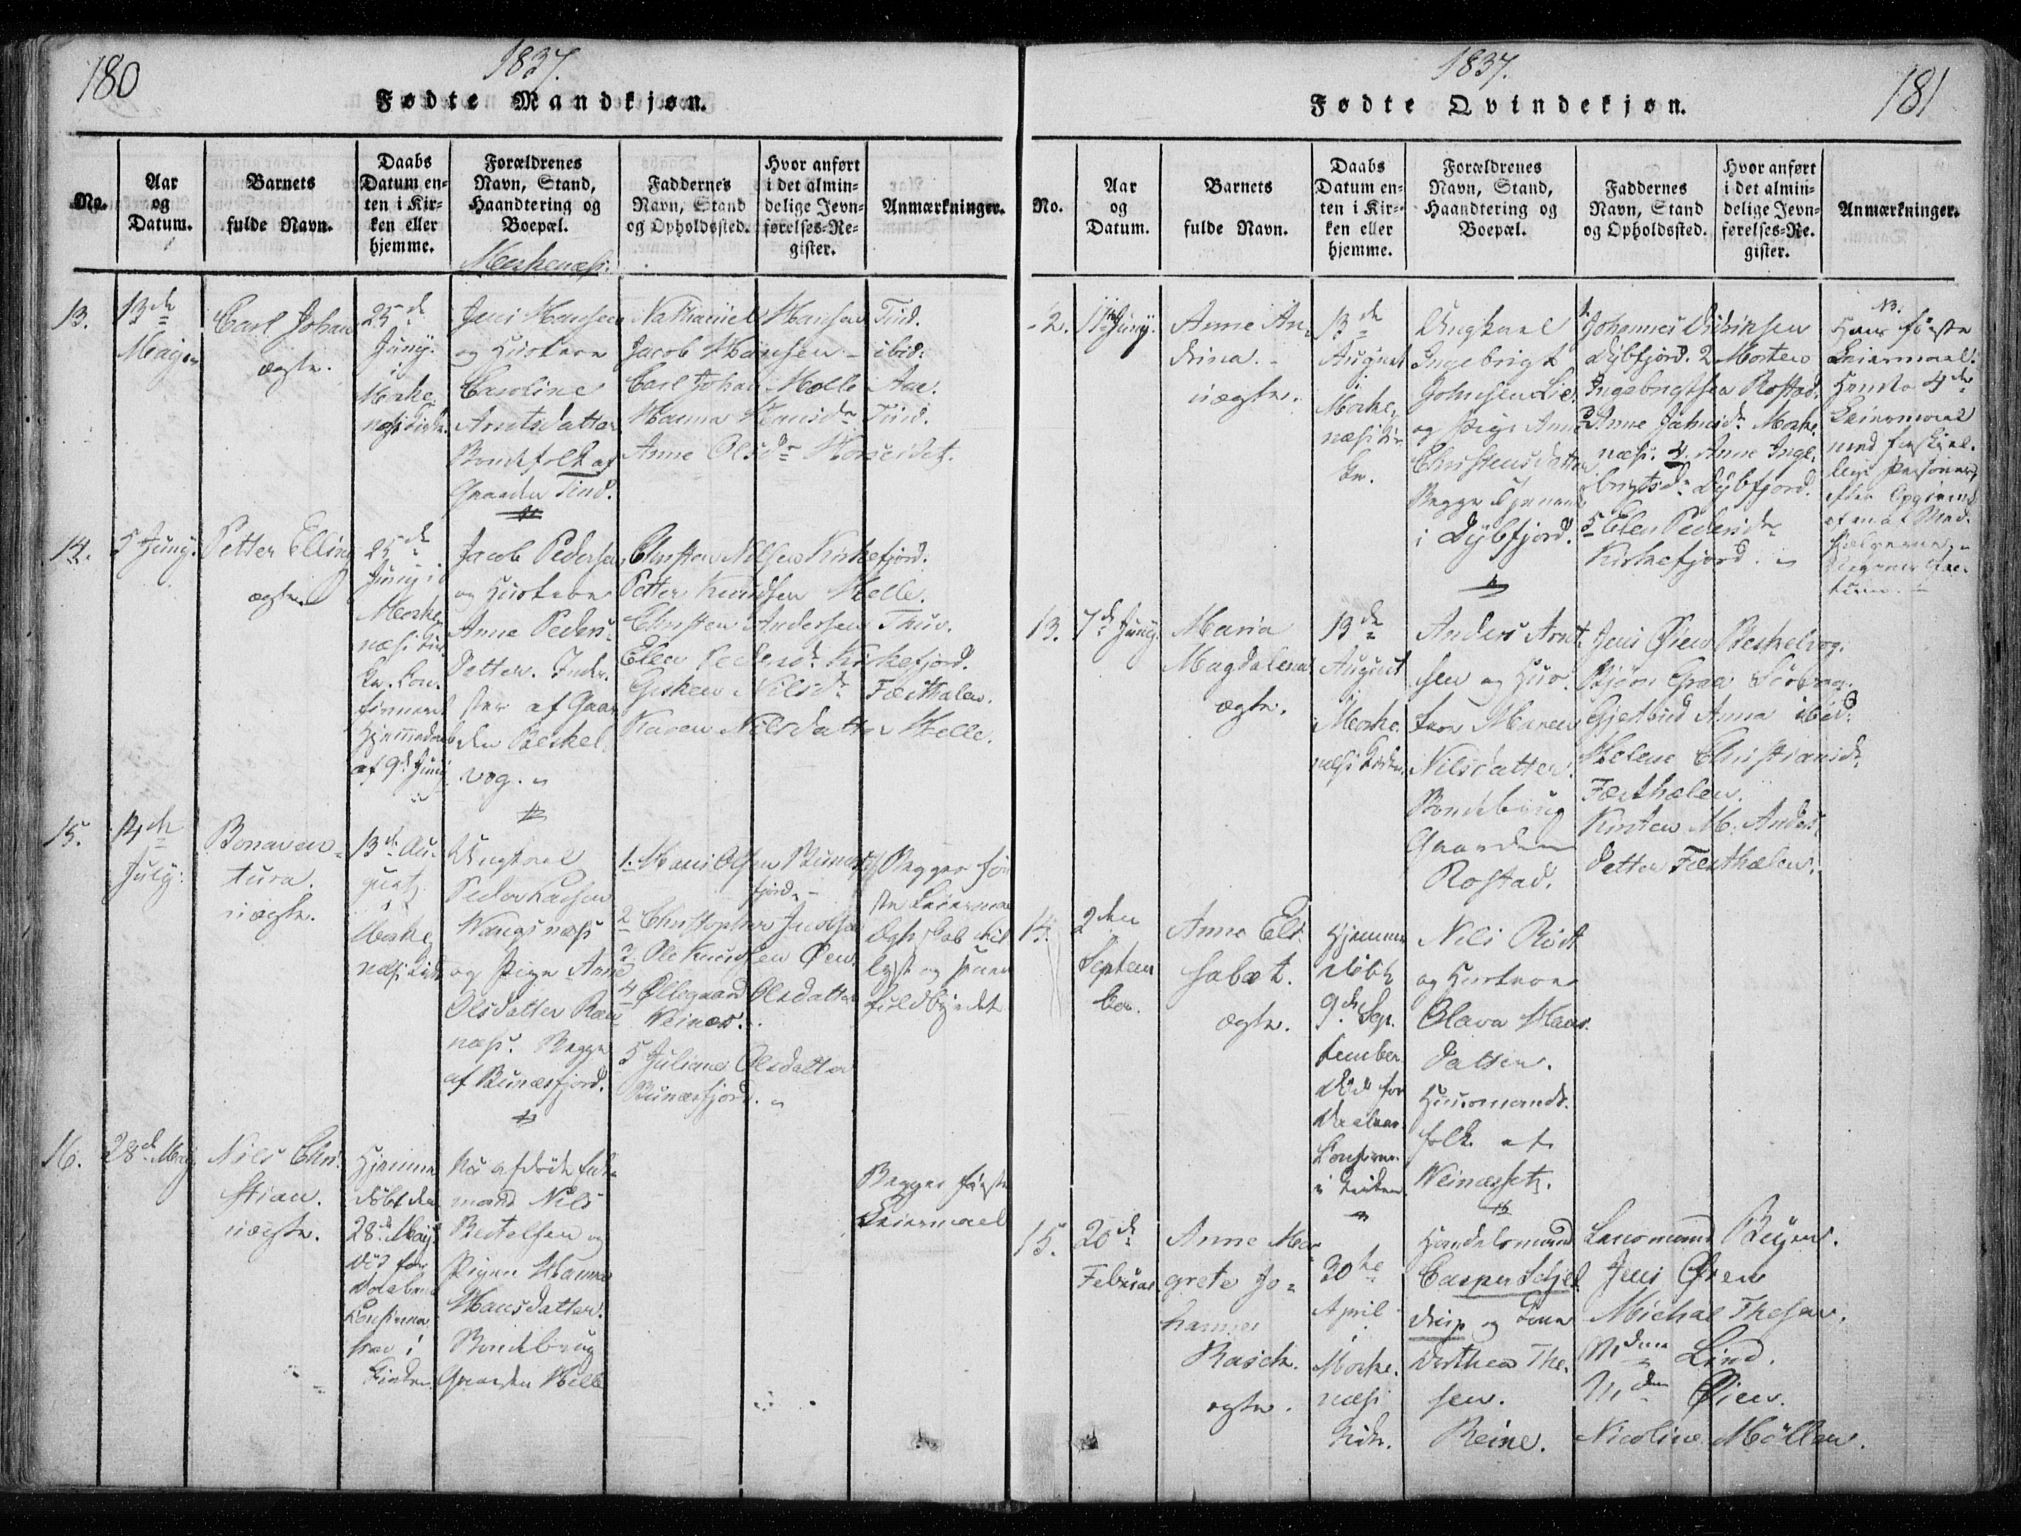 180
1837.
Fødte Mandkjøn.
No.
Aar
og
Datum.
Barnets
fulde Navn.
Daabs
Datum en-
ten i Kir-
ken eller
hjemme.
Forældrenes
Navn, Stand,
Haandtering og
Boepæl.
Faddernes
Navn, Stand
og Opholdssted.
Hvor anført
i det almin-
delige Jevn-
førelses-Re-
gister.
Anmærkninger.
13.
13de
Maji
Carl Johan
ægte.
25de
Juny.
i
Moske-
næs Kirke
Jens Hansen
og Hustroe
Caroline
Arntsdatter
Bondefolk af
Gaarden Tind.
Nathaniel Hansen Tind.
Jacob Hansen - ibid:
Carl Johan Molle Aae.
Hanna Hansdr Tind.
Anne Olsdr
14.
5 Juny.
Petter Elling
ægte
25de
Juny i
Moske-
næs Kir-
ke. Con-
firmeret
Hjemmedaab
af 9de Juny
Jacob Pedersen
og Hustroe
Anne Peders-
datter. Inder-
ster af Gaar-
den Beskel-
vog.
Christen Nilsen Kirkefjord.
Petter Knudsen Helle.
Christen Andersen Thuv.
Elen Pedersdr Kirkefjord.
Gisken Nilsdr Færthalen.
Karen Nilsdatter Helle.
15.
14de
July.
Bonaven-
tura.
uægte.
13de Au-
gust
i
Moske-
næs Kirke
Ungkarl
Peder Larsen
Vangsnæs
og Pige Anne
Olsdatter
næs. Begge
af Bunæsfjord.
1. Hans Olsen Bunæs-
fjord.-
2 Christopher Jacobsen
3. Ole Knudsen Øen.
4 Øllegaard Olsdatter
Veinæs.
5 Juliane Olsdatter
Bunæsfjord.
Begges før-
ste Leiermaal
16.
28de Maij
Nils Chri-
stian.
uægte.
Hjemme
døbt den
28de Maij
død før
Daabens
Confirma-
tion i
Kirken
Nils
Bertelsen og
Pigen Hanna
Hansdatter.
Bondebrug
Gaarden Helle
Begges første
Leiermaal
181
1837.
Fødte Qvindekjøn.
No.
Aar
og
Datum.
Barnets
fulde Navn.
Daabs
Datum en-
ten i Kir-
ken eller
hjemme.
Forældrenes
Navn, Stand,
Haandtering og
Boepæl.
Faddernes
Navn, Stand
og Opholdssted.
Hvor anført
i det almin-
delige Jevn-
førelses-Re-
gister.
Anmærkninger.
12.
Juny.
Anne An-
drina.
uægte.
13de
August
i
Moske-
næs Kir-
ke.
Ungkarl
Ingebrigt
Johnsen
og Pige Anne
Christensdatter
Begge tjenende
i Dybfjord.
1 Johannes Didriksen
Dybfjord. 2 Morten
Ingebrigtsen Rostad.
3 Anne Johnsdr Moske-
næs. 4. Anne Inge-
brigtsdr Dybfjord.
5 Elen Pedersdr
Kirkefjord.
NB.
Hans første
Leiermaal.
Hendes 4de
Leiermaal
med forskjel-
lige Personer,
13.
7de Juny
Maria
Magdalena
ægte.
13de
August
i
Moske-
næs Kirke
Anders Arnt-
sen og Hus-
troe Maren
Nilsdatter.
Bondebrug
Gaarden
Rostad.
Jens Øien Beskelvog.
Bjørn Graa Sørvog.
Gjertrud Anna ibid:
Helene Christiansdr
Færthalen.
Kirsten M: Anders-
datter Færthalen.
14.
2den
Septem-
ber.
Anne Eli-
sabæt.
ægte.
Hjemme-
døbt
9de Sep-
tember
død før
Daabens
Confirm.
i Kirken.
Nils
og Hustroe
Olava Hans-
datter.
Huusmands-
folk af
Veinæsset.
15.
20de
Februar
Anne Mar-
grete Jo-
hanna
Rasch.
ægte.
30te
April
i
Moske-
næs
Kirke.
Handelsmand
Casper Schjel-
drup og Kone
Dorthea The-
sen.
Reine.
Lensmand Beyer.
Jens Øien
Michal Thesen.
Mdme Lind.
Mdme Øien.
Nicoline Møller.